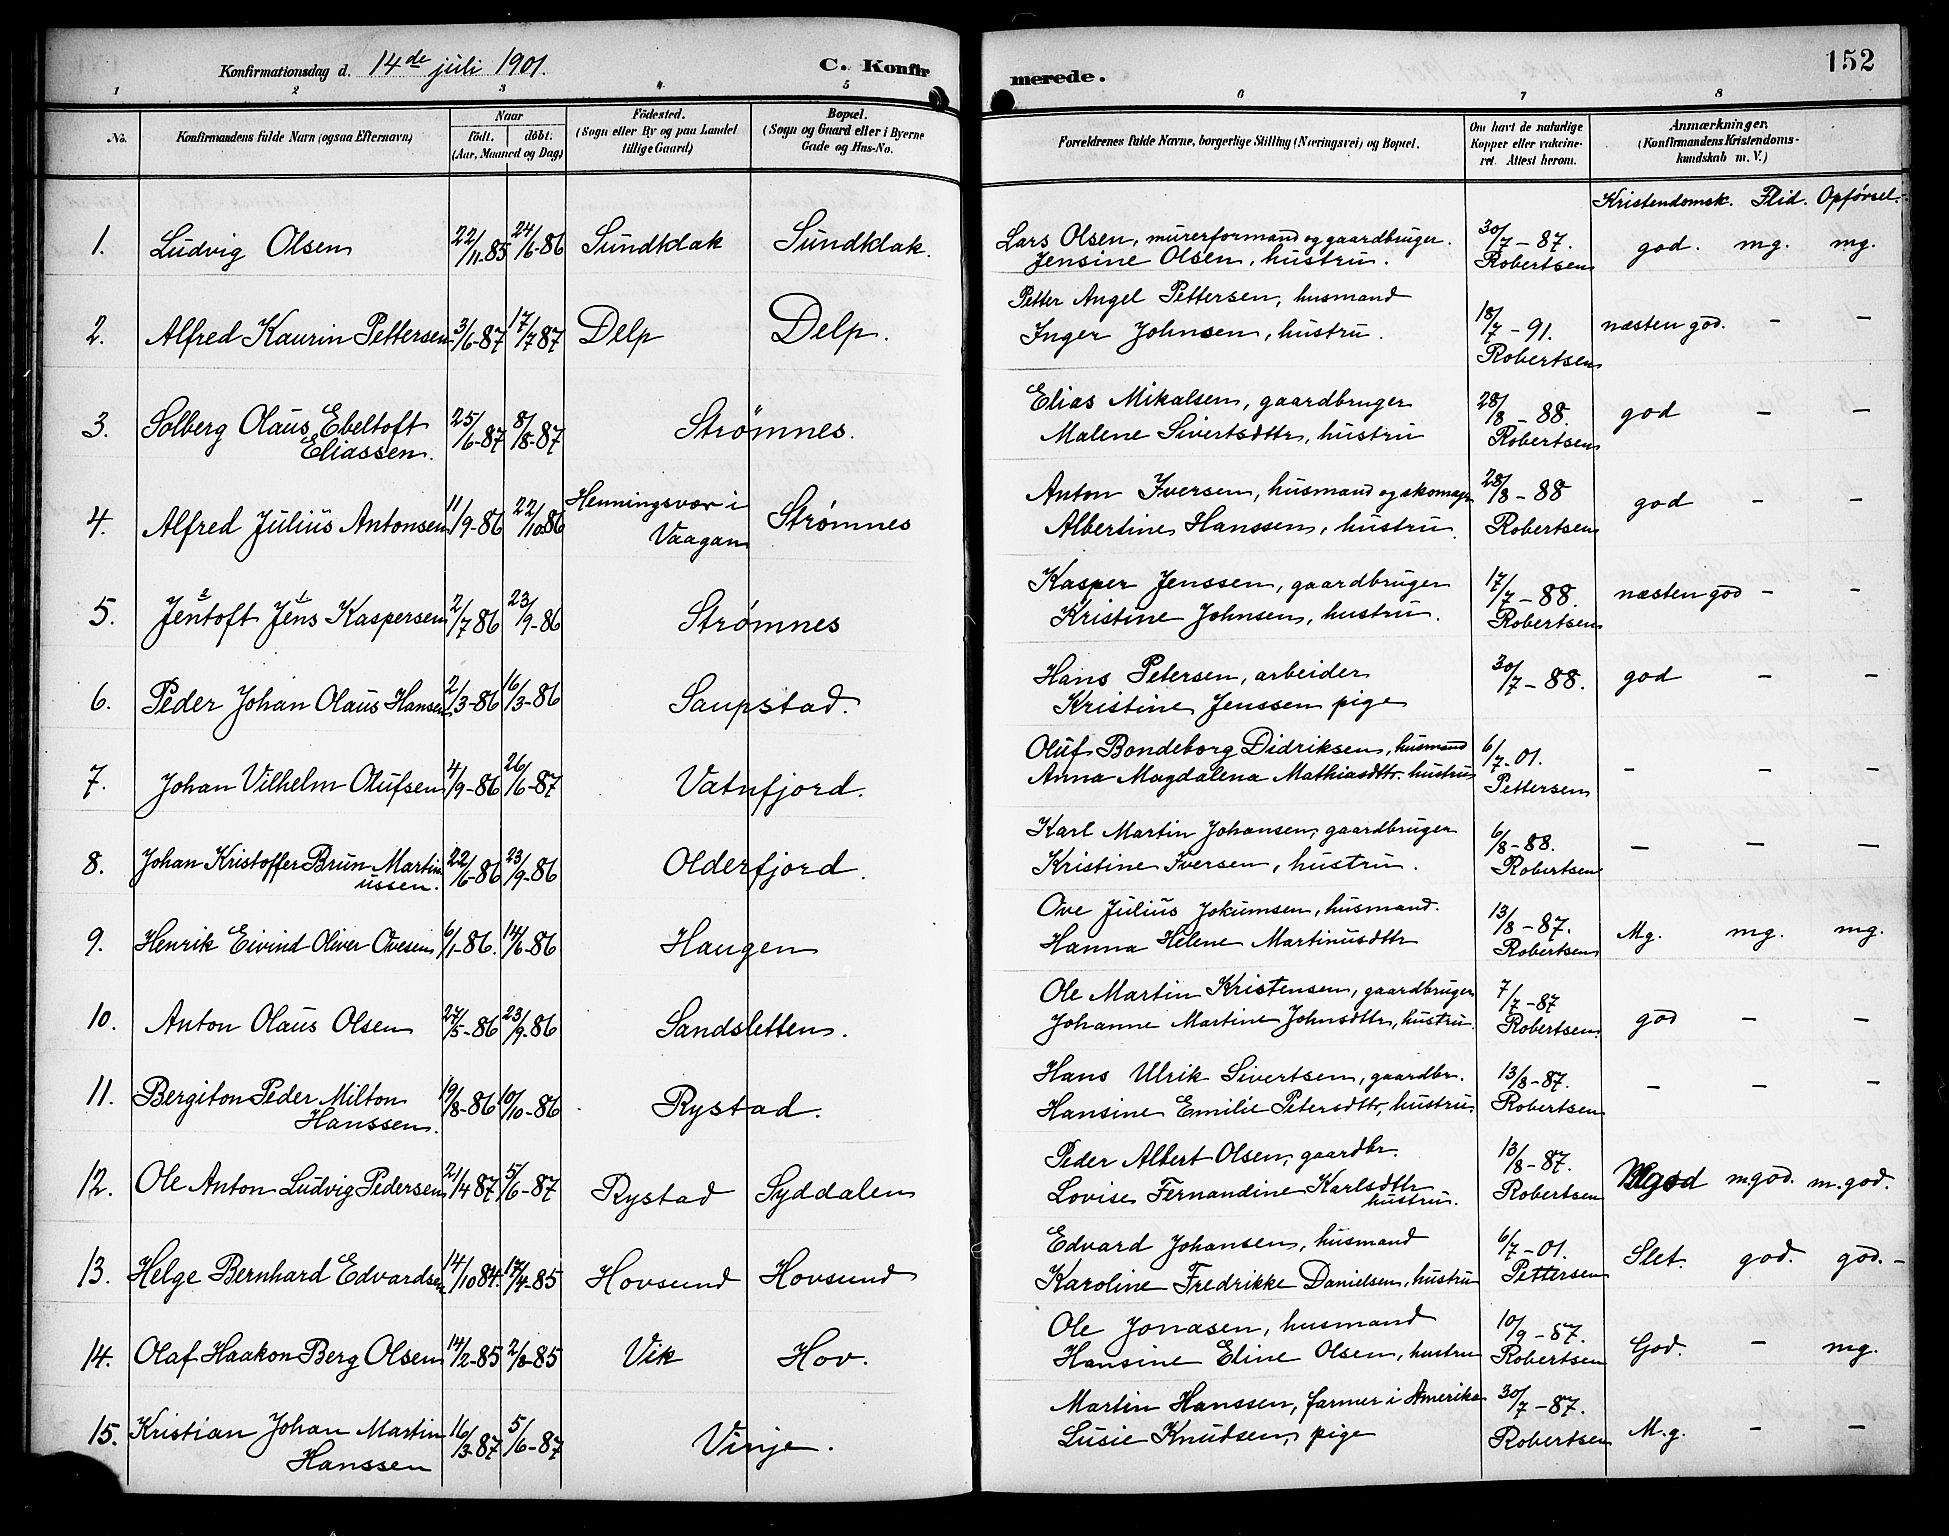 Konfirmationsdag d. 14de juli 1901.
C. Konfirmerede.
152
1 2 3 4 5 6 7 8
No.
Konfirmandens fulde Navn (ogsaa Efternavn)
Naar
födt. döbt.
(Aar, Maaned og Dag)
Födested.
(Sogn eller By og paa Landet
tillige Gaard)
Bopæl.
(Sogn og Gaard eller i Byerne
Gade og Hus-No.
Forældrenes fulde Navne, borgerlige Stilling (Næringsvei) og Bopæl.
Om havt de naturlige
Kopper eller vakcine-
ret. Attest herom.
Anmærkninger.
(Konfirmandens Kristendoms-
kundskab m. V.)
Kristendomsk. Flid. Opførsel.
1. Ludvig Olsen 22/11-85 24/6-86 Sundklak Sundklak.
Lars Olsen, murerformand og gaardbruger.
Jensine Olsen, hustru.
30/7-87.
Robertsen
god. mg. mg.
2. Alfred Kaurin Pettersen 3/6-87 17/7 87 Delp Delp.
Petter Angel Pettersen, husmand
Inger Johnsen, hustru.
18/7-91.
Robertsen
næsten god. - -
3. Solberg Olaus Ebeltoft
Eliassen.
25/6-87 8/8-87 Strømnes.
Elias Mikalsen, gaardbruger
Malene Sivertsdttr, hustru
28/8-88.
Robertsen
god - -
4. Alfred Julius Antonsen 11/9-86 22/10 86
Henningsvær i
Vaagan
Strømnes
Anton Iversen, husmand og skomager
Albertine Hanssen, hustru.
28/8-88
Robertsen
god - -
5. Jentoft Jens Kaspersen 2/7 86 23/9-86 Strømnes
Kasper Jenssen, gaardbruger
Kristine Johnsen, hustru.
17/7-88.
Robertsen
næsten god - -
6. Peder Johan Olaus Hansen 2/3-86 16/3-86 Saupstad.
Hans Petersen, arbeider
Kristine Jenssen pige
30/7-88.
god - -
7. Johan Vilhelm Olufsen 4/9-86 26/6-87 Vatnfjord.
Oluf Bondeborg Didriksen, husmand
Anna Magdalena Mathiasdttr, hustru
6/7-01.
Pettersen
- - -
8. Johan Kristoffer Brun Martin
ussen.
22/6-86 23/9-86 Olderfjord.
Karl Martin Johansen, gaardbruger
Kristine Iversen, hustru.
6/8-88.
Robertsen
- - -
9. Henrik Eivind Oliver Ovesen 6/1-86. 14/6-86 Haugen
Ove Julius Jokumsen, husmand.
Hanna Helene Martinusdttr
13/8-87.
Robertsen
Mg. mg. mg.
10. Anton Olaus Olsen 27/5-86 23/9-86 Sandsletten.
Ole Martin Kristensen, gaardbruger
Johanne Martine Johnsdttr, hustru.
7/7-87
Robertsen.
god - -
11. Bergiton Peder Milton
Hanssen.
19/8-86 10/10-86 Rystad.
Hans Ulrik Sivertsen, gaardbr.
Hansine Emilie Petersdttr, hustru
13/8-87.
Robertsen
- - -
12. Ole Anton Ludvig Pedersen 21/4 87 5/6-87 Rystad Syddalen
Peder Albert Olsen, gaardbr.
Lovise Fernandine Karlsdttr
hustru.
13/8-87.
Robertsen
Mgod mgod. m.god.
13. Helge Bernhard Edvardsen 14/10 84. 17/4-85 Hovsund Hovsund
Edvard Johansen, husmand
Karoline Fredrikke Danielsen, hustru
6/7-01.
Pettersen
Slet. god. god.-
14. Olaf Haakon Berg Olsen 14/2-85 2/8-85 Vik Hov.
Ole Jonasen, husmand
Hansine Eline Olsen, hustru
10/9-87.
Robertsen
God. - mg.
15. Kristian Johan Martin
Hanssen
16/3-87 5/6-87 Vinje.
Martin Hanssen, farmer i Amerika
Lusie Knudsen, pige
30/7-87.
Robertsen
M.g. - -